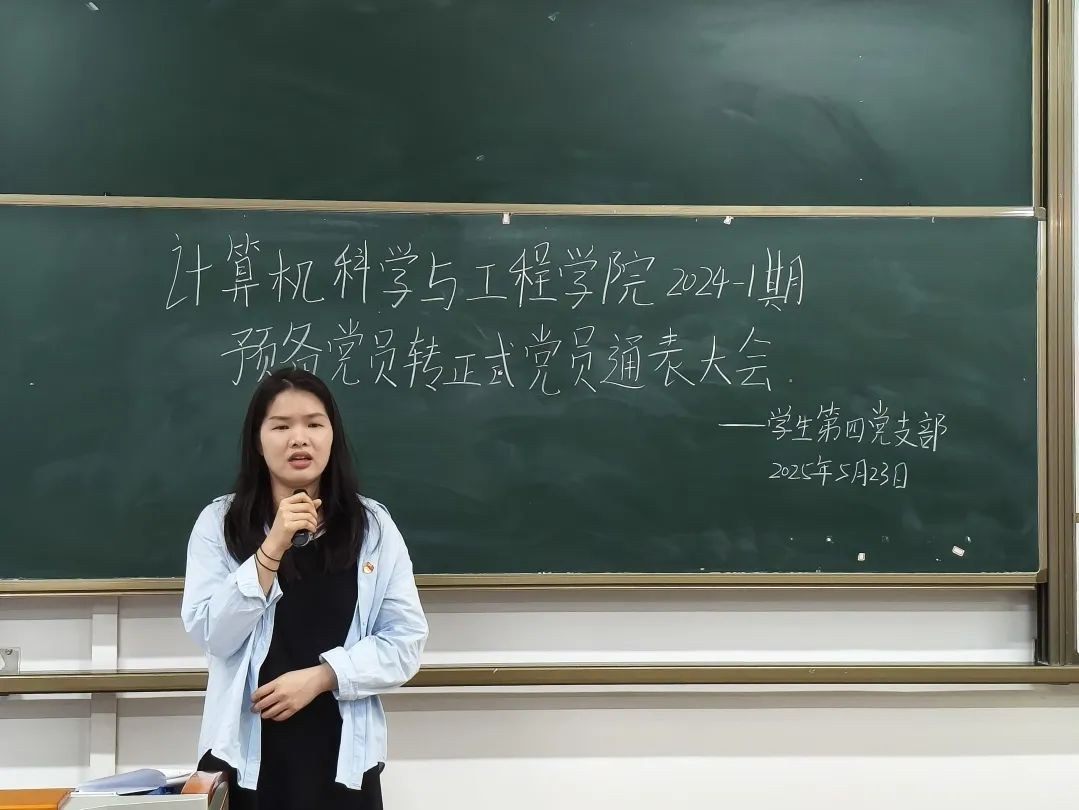 计算机科学与工程学院2024-1期
预备党员转正式党员通表大会
——学生第四党支部
2025年5月23日